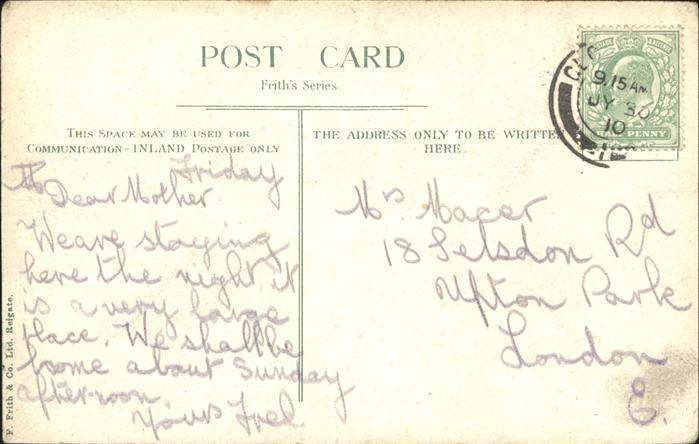 POST CARD
Frith's Series
THIS SPACE MAY BE USED FOR
COMMUNICATION - INLAND POSTAGE ONLY
THE ADDRESS ONLY TO BE WRITTEN
HERE.
Friday
Dear Mother
We are staying
here the night it
is a very large
place. We shall be
home about Sunday
after-noon
Yours Fred.
Mrs Macer
18 Selsdon Rd
Upton Park
London
E.
9.15 AM
JY 30
10
PENNY
F. Frith & Co. Ltd. Reigate.